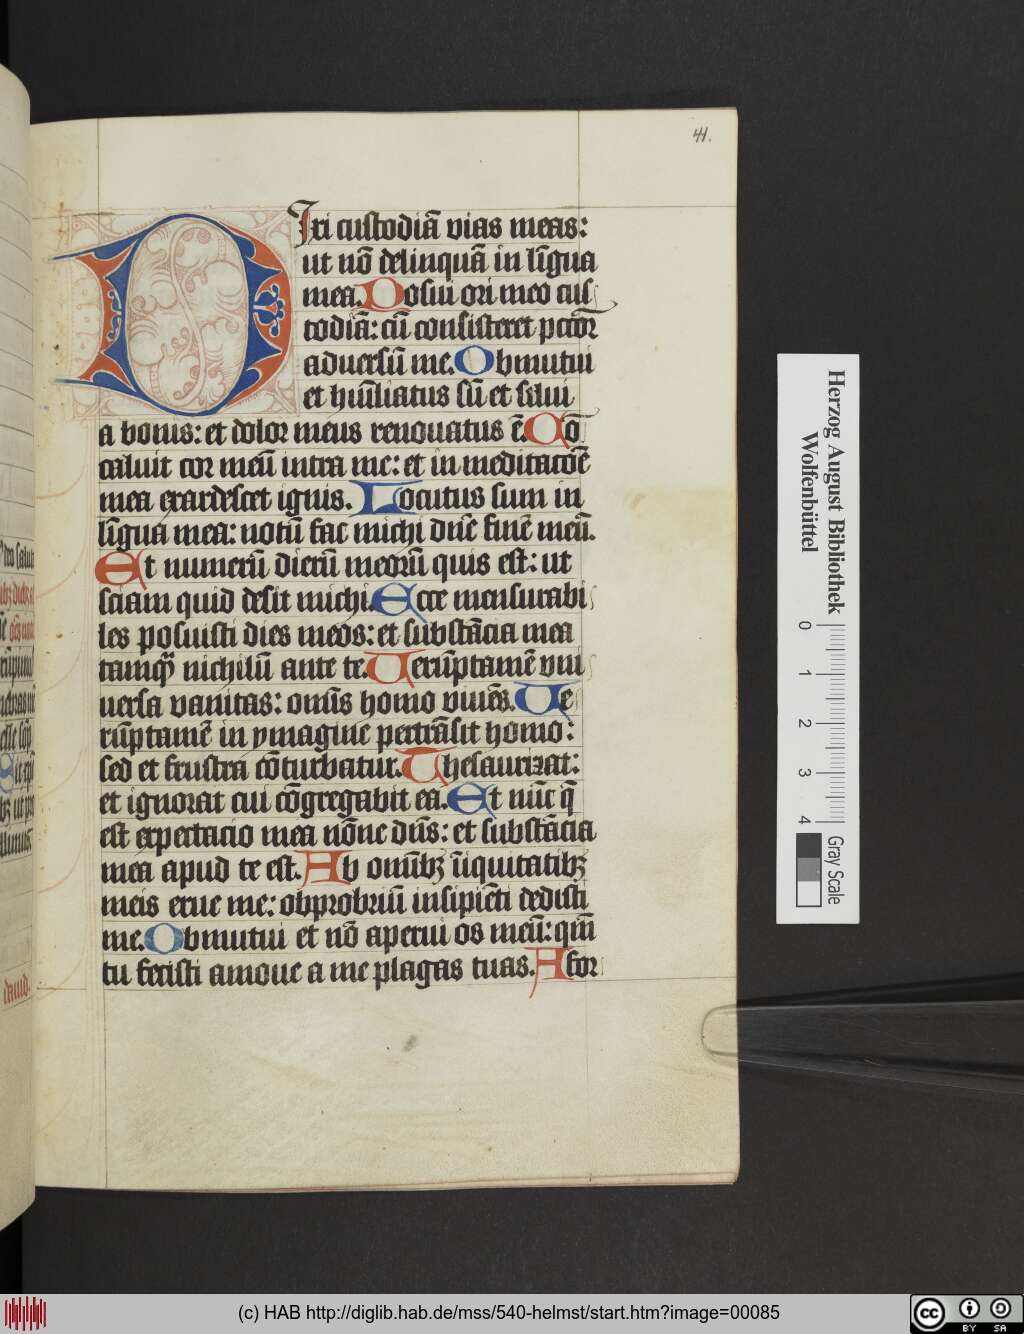 41.
DIxi custodiā vias meas:
ut nō delinquā in līgua
mea. Posui ori meo cus
todiā: cū consisteret pctōr
aduersū me. Obmutui
et hūiliatus sū et silui
a bonis: et dolor meus renouatus ē. Cō
caluit cor meū intra me: et in meditacōē
mea exardescet ignis. Locutus sum in
līgua mea: notū fac michi dnē finē meū.
Et numerū dierū meorū quis est: ut
sciam quid desit michi. Ecce mensurabi
les posuisti dies meos: et substācia mea
tamqꝫ nichilū ante te. Uerūptamē vni
uersa vanitas: omīs homo viuēs. Ue
rūptamē in ymagine pertrāsit homo:
sed et frustra cōturbatur. Thesaurizat:
et ignorat cui cōgregabit ea. Et nūc q̄
est expectacio mea nōne dn̄s: et substācia
mea apud te est. Ab omībꝫ īiquitatibꝫ
meis erue me: obprobriū insipiēti dedisti
me. Obmutui et nō aperui os meū: qm̄
tu fecisti amoue a me plagas tuas. A for
Herzog August Bibliothek
Wolfenbüttel
0 1 2 3 4
Gray Scale
(c) HAB http://diglib.hab.de/mss/540-helmst/start.htm?image=00085
cc BY SA